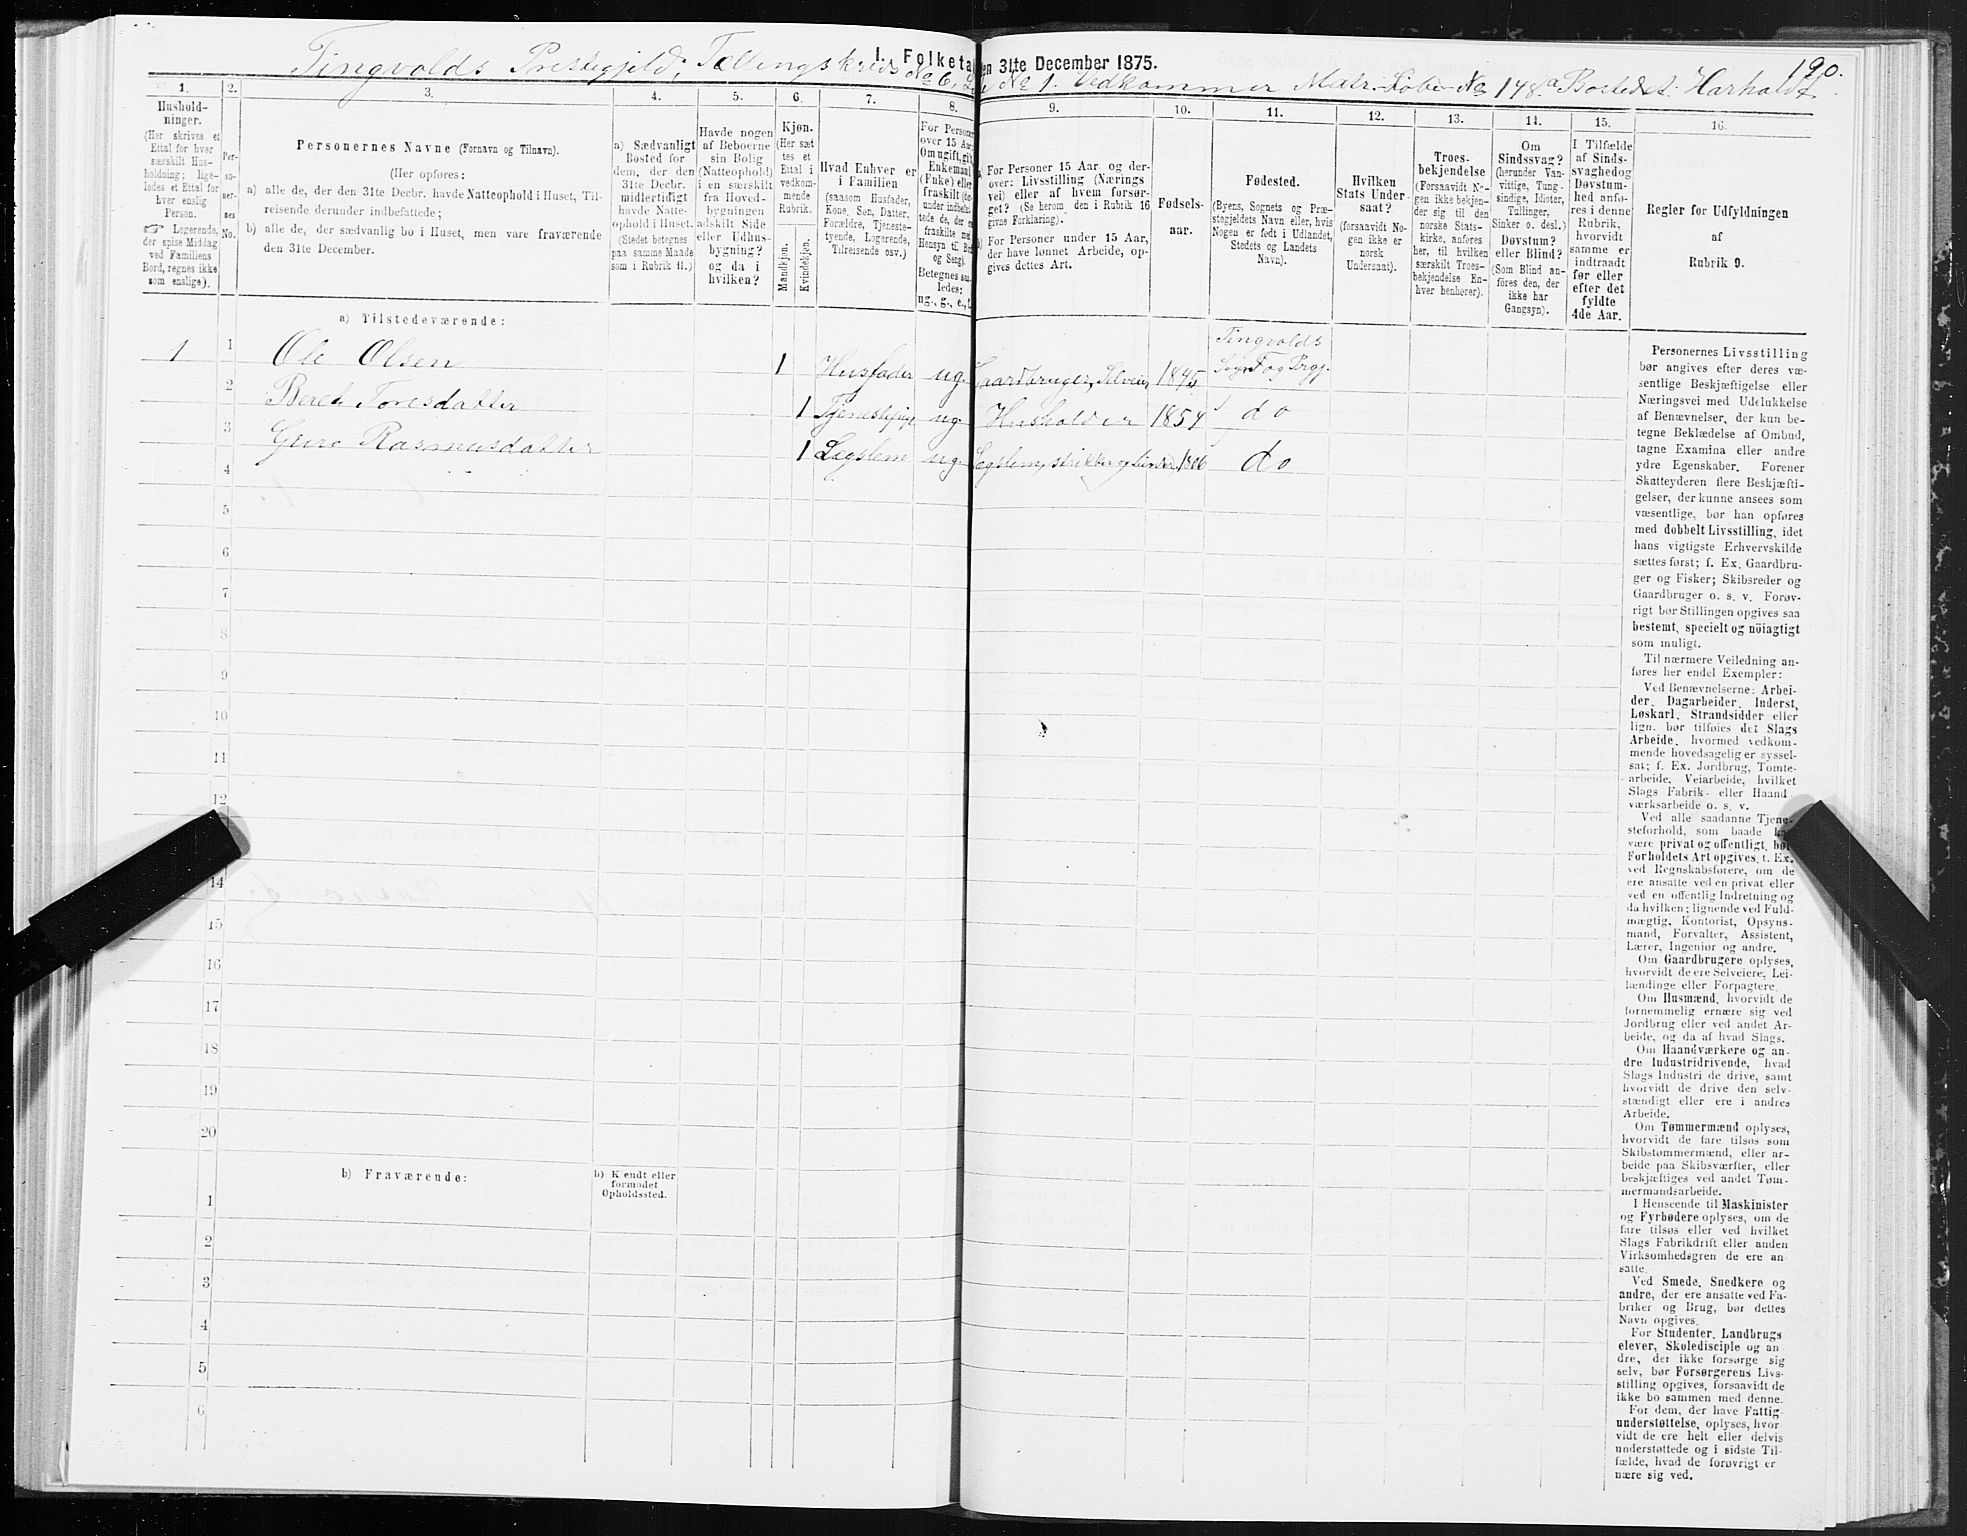 190.
1. Folketa en 31te December 1875.
Tingvolds Prestegjeld, Tællingskreds No 6, No 1. Vedkommer Matr. Løbe No 148a Bostedet: Harhaldt
1. 2. 3. 4. 5. 6. 7. 8. 9. 10. 11. 12. 13. 14. 15. 16.
Hushold-
ninger.
(Her skrives et
Ettal for hver
særskilt Hus-
holdning; lige-
ledes et Ettal for
hver enslig
Person.
☞ Logerende,
der spise Middag
ved Familiens
Bord, regnes ikke
som enslige).
Per-
so-
ner-
nes
No.
Personernes Navne (Fornavn og Tilnavn).
(Her opføres:
a) alle de, der den 31te Decbr. havde Natteophold i Huset, Til-
reisende derunder indbefattede;
b) alle de, der sædvanlig bo i Huset, men vare fraværende
den 31te December.
a) Sædvanligt
Bosted for
dem, der den
31te Decbr.
midlertidigt
havde Natte-
ophold i Huset.
(Stedet betegnes
paa samme Maade
som i Rubrik 11.)
Havde nogen
af Beboerne
sin Bolig
(Natteophold)
i en særskilt
fra Hoved-
bygningen
adskilt Side
eller Udhus-
bygning?
og da i
hvilken?
Kjøn.
(Her sæt-
tes et
Ettal i
vedkom-
mende
Rubrik.
Mandkjøn.
Kvindekjøn.
Hvad Enhver er
i Familien
(saasom Husfader,
Kone, Søn, Datter,
Forældre, Tjeneste-
tyende, Logerende,
Tilreisende osv.)
For Personer
over 15 Aar:
Om ugift, gift,
Enkemand
(Enke) eller
fraskilt (de-
under indbefat-
tede de, der
fraskilte med
Hensyn til Bord
og Seng).
Betegnes saa-
ledes:
ug., g., e.,
For Personer 15 Aar og der-
over: Livsstilling (Nærings
vei) eller af hvem forsør-
get? (Se herom den i Rubrik 16
givne Forklaring).
For Personer under 15 Aar,
der have lønnet Arbeide, op-
gives dettes Art.
Fødsels-
aar.
Fødested.
(Byens, Sognets og Præ-
stegjeldets Navn eller, hvis
Nogen er født i Udlandet,
Stedets og Landets
Navn).
Hvilken
Stats Under-
saat?
(forsaavidt No-
gen ikke er
norsk
Undersaat).
Troes-
bekjendelse
(Forsaavidt No-
gen ikke bekjen-
der sig til den
norske Stats-
kirke, anføres
her, til hvilken
særskilt Troes-
bekjendelse En-
hver henhører).
Om
Sindssvag?
(herunder Van-
vittige, Tung-
sindige, Idioter,
Tullinger,
Sinker o. desl.)
Døvstum?
eller Blind?
(Som Blind an-
føres den, der
ikke har
Gangsyn).
I Tilfælde
af Sinds-
svaghed og
Døvstum-
hed anfø-
res i denne
Rubrik,
hvorvidt
samme er
indtraadt
før eller
efter det
fyldte
4de Aar.
Regler for Udfyldningen
af
Rubrik 9.
a) Tilstedeværende:
1 1 Ole Olsen 1 Husfader ug. Gaardbruger, Selveier 1845 Tingvolds Sogn og Prgj.
2 Beret Toresdatter 1 Tjenestepige ug Husholder 1854 do
3 Guro Rasmusdatter 1 Lægslem ug Lægslem, strikker og binder, 1806 do
4
5
6
7
8
9
10
11
12
14
15
16
17
18
19
20
b) Fraværende:
b) Kjendt eller
formodet
Opholdssted.
1
2
3
4
5
6
Personernes Livsstilling
bør angives efter deres væ-
sentlige Beskjæftigelse eller
Næringsvei med Udelukkelse
af Benævnelser, der kun be-
tegne Beklædelse af Ombud,
tagne Examina eller andre
ydre Egenskaber. Forener
Skatteyderen flere Beskjæfti-
gelser, der kunne ansees som
væsentlige, bør han opføres
med dobbelt Livsstilling, idet
hans vigtigste Erhvervskilde
sættes først; f. Ex. Gaardbru-
ger og Fisker; Skibsreder og
Gaardbruger o. s. v. Forøv-
rigt bør Stillingen opgives saa
bestemt, specielt og nöiagtigt
som muligt.
Til nærmere Veiledning an-
føres her endel Exempler:
Ved Benævnelserne: Arbei-
der, Dagarbeider, Inderst,
Løskarl, Strandsidder eller
lign. bør tilføies det Slags
Arbeide, hvormed vedkom-
mende hovedsagelig er syssel-
sat; f. Ex. Jordbrug, Tømte-
arbeide, Veiarbeide, hvilket
Slags Fabrik- eller Haand
værksarbeide o. s. v.
Ved alle saadanne Tjene-
steforhold, som baade
være privat og offentligt, bør
Forholdets Art opgives, f. Ex.
ved Regnskabsførere, om de
ere ansatte ved en privat eller
ved en offentlig Indretning og
da hvilken; lignende ved Fuld-
mægtig, Kontorist, Opsyns-
mand, Forvalter, Assistent,
Lærer, Ingeniør og andre.
Om Gaardbrugere oplyses,
hvorvidt de ere Selveiere, Lei-
lændinge eller Forpagtere.
Om Husmænd, hvorvidt de
fornemmelig ernære sig ved
Jordbrug eller ved andet Ar-
beide, og da af hvad Slags.
Om Haandværkere og an-
dre Industridrivende, hvad
Slags Industri de drive, samt
hvorvidt de drive den selv-
stændigt eller ere i andres
Arbeide.
Om Tømmermænd oplyses,
hvorvidt de fare tilsøs som
Skibstømmermænd, eller ar-
beide paa Skibsværfter, eller
beskjæftiges ved andet Tøm-
mermandsarbeide.
I Henseende til Maskinister
og Fyrbødere oplyses, om de
fare tilsøs eller ved hvilket
Slags Fabrikdrift eller anden
Virksomhedsgren de ere an-
satte.
Ved Smede, Snedkere og
andre, der ere ansatte ved Fa-
briker og Brug, bør dettes
Navn opgives.
For Studenter, Landbrugs
elever, Skoledisciple og an-
dre, der ikke forsørge sig
selv, bør Forsørgerens Livs-
stilling opgives, forsaavidt de
ikke bo sammen med denne.
For dem, der have Fattig-
understøttelse, oplyses, hvor-
vidt de ere helt eller delvis
understøttede og i sidste Til-
fælde, hvad de forøvrigt er
nære sig ved.